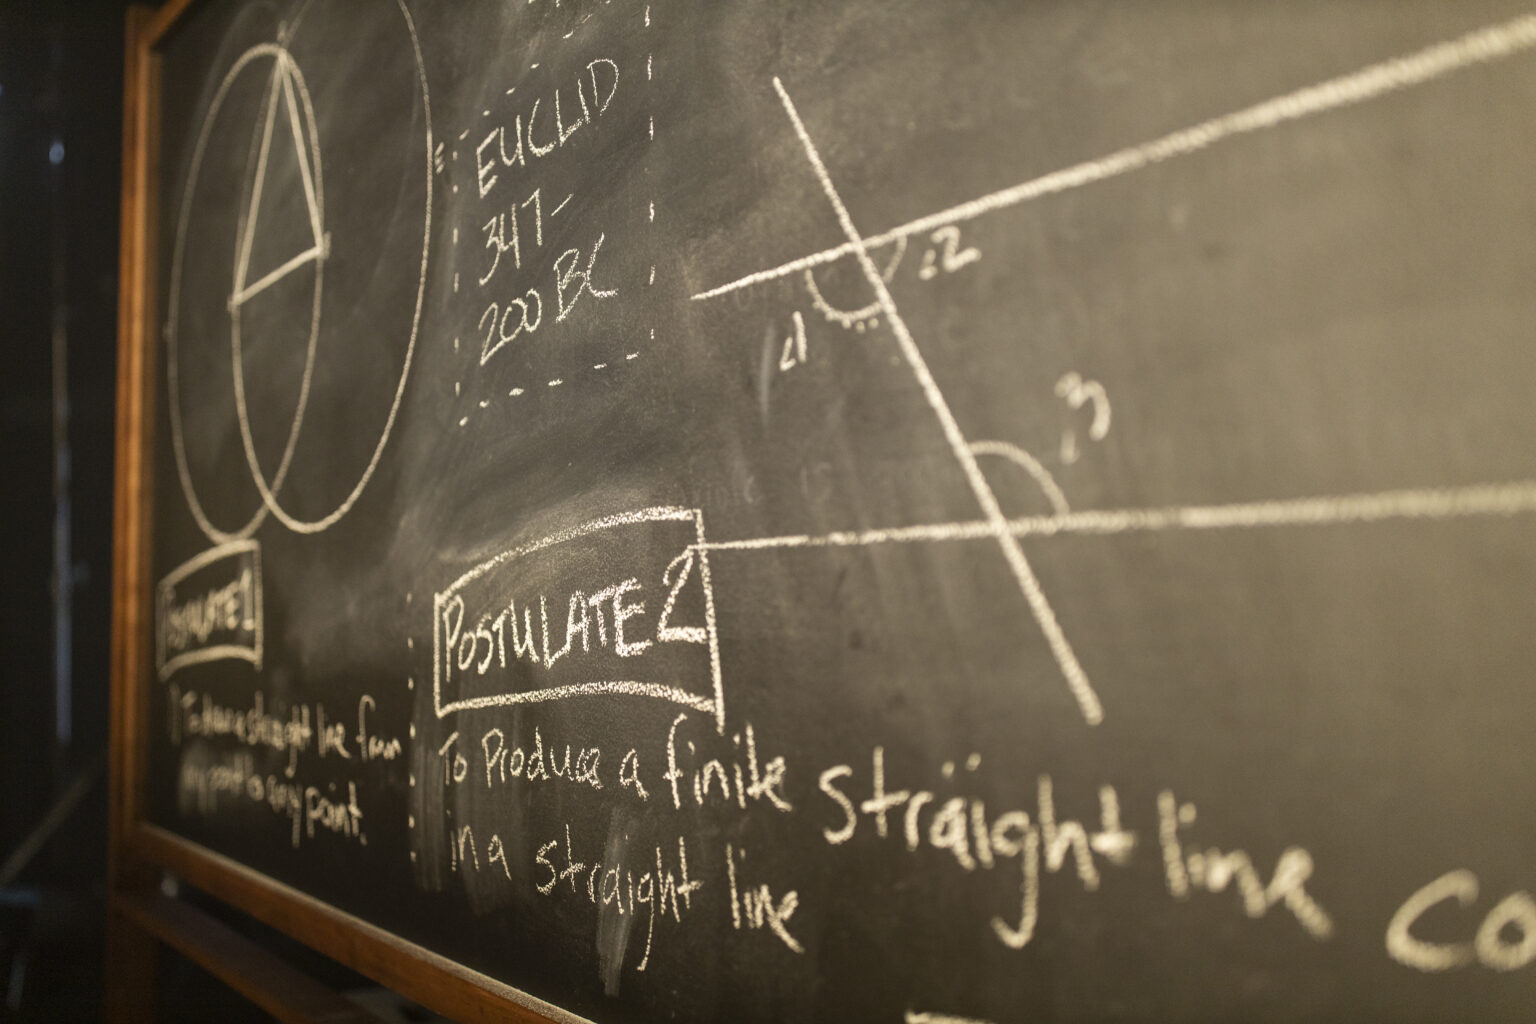 EUCLID
347-
200 BC
∠1
∠2
POSTULATE 1
To draw a straight line from
any point to any point.
POSTULATE 2
To Produce a finite straight line co
in a straight line